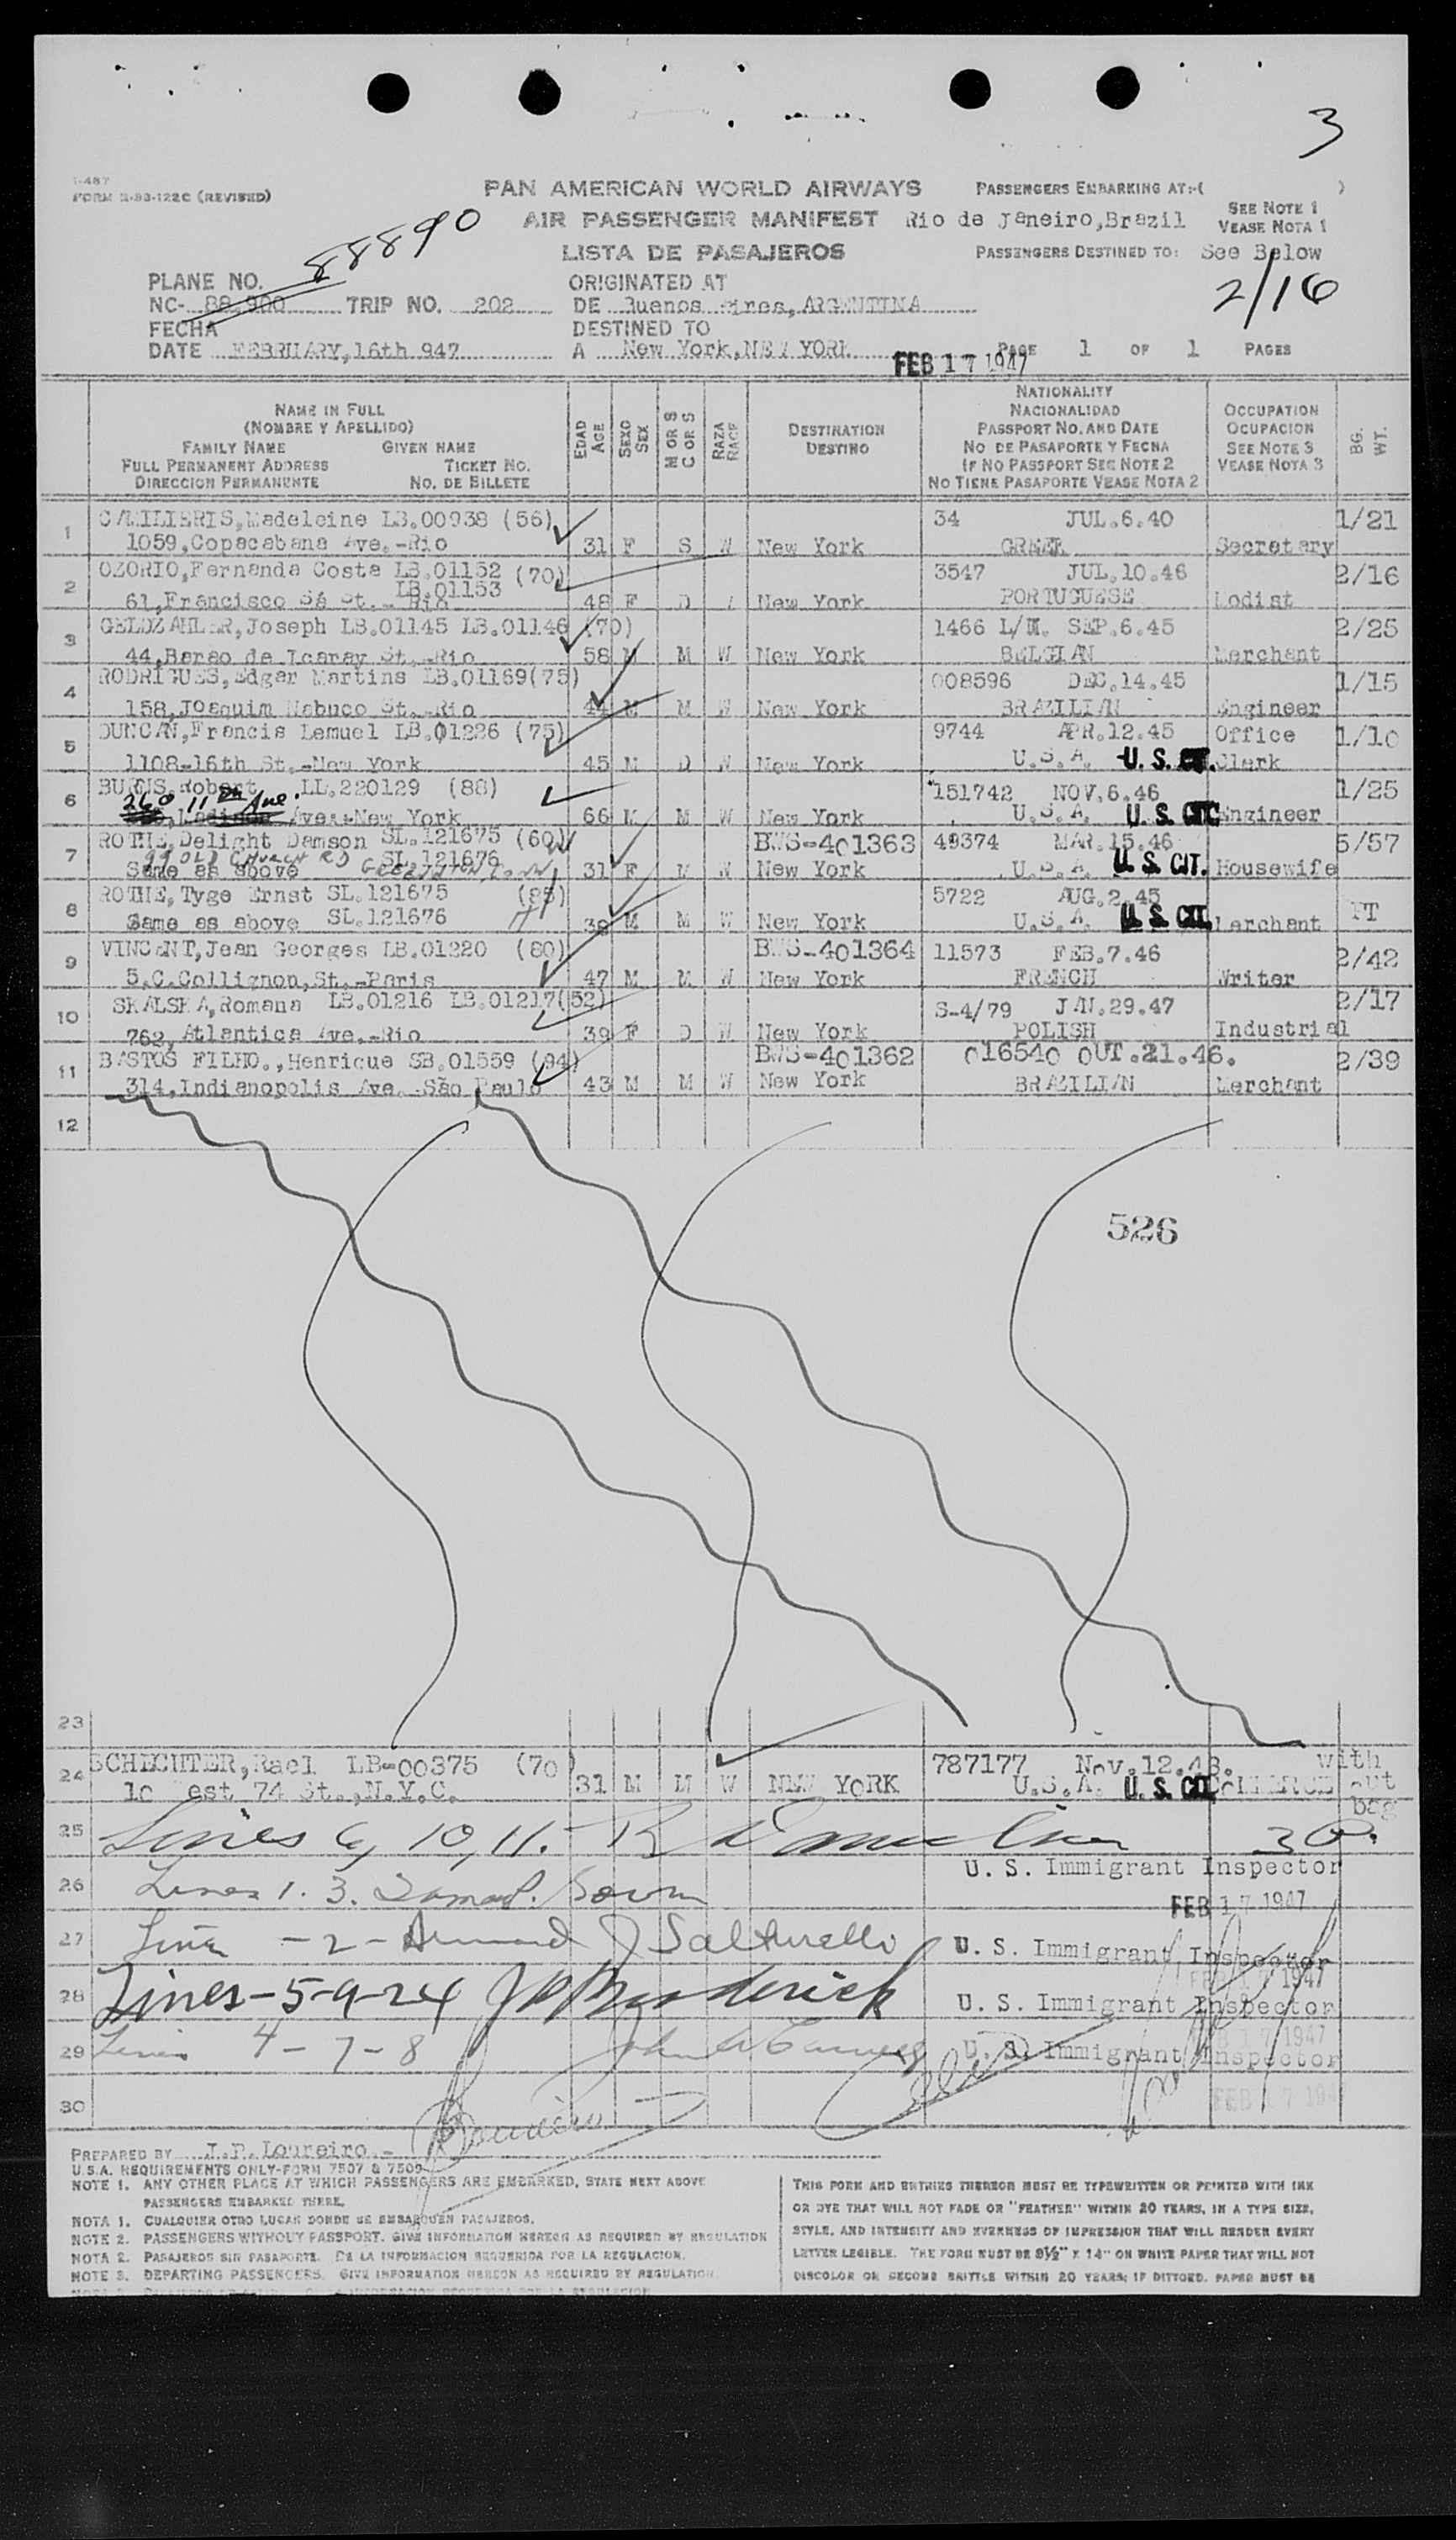 3
I-487
FORM D-93-122C (REVISED)
PAN AMERICAN WORLD AIRWAYS
AIR PASSENGER MANIFEST
LISTA DE PASAJEROS
PASSENGERS EMBARKING AT:-( )
Rio de Janeiro,Brazil
SEE NOTE 1
VEASE NOTA 1
PASSENGERS DESTINED TO: See Below
88890
2/16
PLANE NO.
NC- 88,900 TRIP NO. 202
ORIGINATED AT
DE Buenos Aires, ARGENTINA
FECHA
DATE FEBRUARY,16th 947
DESTINED TO
A New York,NEW YORK
FEB 17 1947
PAGE 1 OF 1 PAGES
NAME IN FULL
(NOMBRE Y APELLIDO)
FAMILY NAME GIVEN NAME
FULL PERMANENT ADDRESS TICKET NO.
DIRECCION PERMANENTE NO. DE BILLETE
EDAD AGE
SEXO SEX
M OR S C OR S
RAZA RACE
DESTINATION
DESTINO
NATIONALITY
NACIONALIDAD
PASSPORT NO. AND DATE
NO DE PASAPORTE Y FECHA
IF NO PASSPORT SEE NOTE 2
NO TIENE PASAPORTE VEASE NOTA 2
OCCUPATION
OCUPACION
SEE NOTE 3
VEASE NOTA 3
BG. WT.
1 CAMILIERIS,Madeleine LB.00938 (56) 34 JUL.6.40 1/21
1059,Copacabana Ave.-Rio 31 F S W New York GREEK Secretary
2 OZORIO,Fernanda Costa LB.01152 (70) 3547 JUL.10.46 2/16
LB.01153
61,Francisco Sá St.- Rio 48 F D New York PORTUGUESE Modist
3 GELDZAHLER,Joseph LB.01145 LB.01146 (70) 1466 L/M. SEP.6.45 2/25
44,Barao de Icaray St.-Rio 58 M M W New York BELGIAN Merchant
4 RODRIGUES,Edgar Martins LB.01169(75) 008596 DEC.14.45 1/15
158,Joaquim Nabuco St.-Rio 44 M M W New York BRAZILIAN Engineer
5 DUNCAN,Francis Lemuel LB.01226 (75) 9744 APR.12.45 Office 1/10
1108-16th St.-New York 45 M D W New York U.S.A. U. S. CIT. Clerk
6 BURNS,Robert LL.220129 (88) 151742 NOV.6.46 1/25
260 11th Ave.
Madison Ave.-New York 66 M M W New York U.S.A. U. S. CIT. Engineer
7 ROTHE,Delight Damson SL.121675 (60) BWS-401363 49374 MAR.15.46 5/57
99 OLD CHURCH RD SL.121676
Same as above 31 F M W New York U.S.A. U. S. CIT. Housewife
8 ROTHE,Tyge Ernst SL.121675 (85) 5722 AUG.2.45 PT
Same as above SL.121676 39 M M W New York U.S.A. U. S. CIT. Merchant
9 VINCENT,Jean Georges LB.01220 (80) BWS-401364 11573 FEB.7.46 2/42
5,C.Collignon,St.-Paris 47 M M W New York FRENCH Writer
10 SKALSKA,Romana LB.01216 LB.01217(52) S-4/79 JAN.29.47 2/17
762, Atlantica Ave.-Rio 39 F D W New York POLISH Industrial
11 BASTOS FILHO.,Henrique SB.01559 (94) BWS-401362 016540 OUT.21.46. 2/39
314,Indianopolis Ave.-São Paulo 43 M M W New York BRAZILIAN Merchant
12
526
23
24 SCHECHTER,Rael LB-00375 (70) 787177 Nov.12.43. with
10 West 74 St.,N.Y.C. 31 M M W NEW YORK U.S.A. U. S. CIT. COMMERCE out
bag
25 Lines 6, 10, 11.
U. S. Immigrant Inspector
26 Lines 1. 3.
FEB 17 1947
27 Line - 2 - Armand J Salturelli U. S. Immigrant Inspector
FEB 17 1947
28 Lines-5-9-24 J P Broderick U. S. Immigrant Inspector
FEB 17 1947
29 Lines 4 - 7 - 8 U. S. Immigrant Inspector
FEB 17 194
30
PREPARED BY J.P. Loureiro.-
U.S.A. REQUIREMENTS ONLY-FORM 7507 & 7509
NOTE 1. ANY OTHER PLACE AT WHICH PASSENGERS ARE EMBARKED, STATE NEXT ABOVE
PASSENGERS EMBARKED THERE.
NOTA 1. CUALQUIER OTRO LUGAR DONDE SE EMBARQUEN PASAJEROS.
NOTE 2. PASSENGERS WITHOUT PASSPORT. GIVE INFORMATION HEREON AS REQUIRED BY REGULATION
NOTA 2. PASAJEROS SIN PASAPORTE. DE LA INFORMACION REQUERIDA POR LA REGULACION.
NOTE 3. DEPARTING PASSENGERS. GIVE INFORMATION HEREON AS REQUIRED BY REGULATION
THIS FORM AND ENTRIES THEREON MUST BE TYPEWRITTEN OR PRINTED WITH INK
OR DYE THAT WILL NOT FADE OR "FEATHER" WITHIN 20 YEARS, IN A TYPE SIZE,
STYLE, AND INTENSITY AND EVENNESS OF IMPRESSION THAT WILL RENDER EVERY
LETTER LEGIBLE. THE FORM MUST BE 8½" X 14" ON WHITE PAPER THAT WILL NOT
DISCOLOR OR BECOME BRITTLE WITHIN 20 YEARS; IF DITTOED. PAPER MUST BE